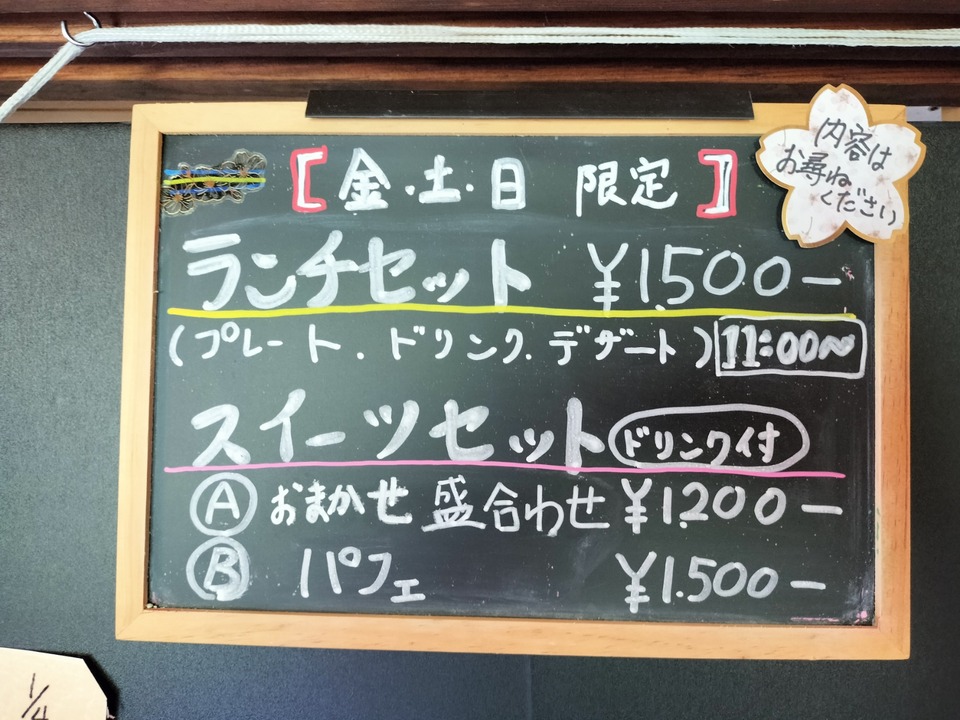 【金・土・日 限定】
内容は
お尋ね
ください
ランチセット ¥1.500ー
(プレート・ドリンク・デザート) 11:00〜
スイーツセット ドリンク付
Ⓐ おまかせ 盛合わせ ¥1.200ー
Ⓑ パフェ ¥1.500ー
1/4